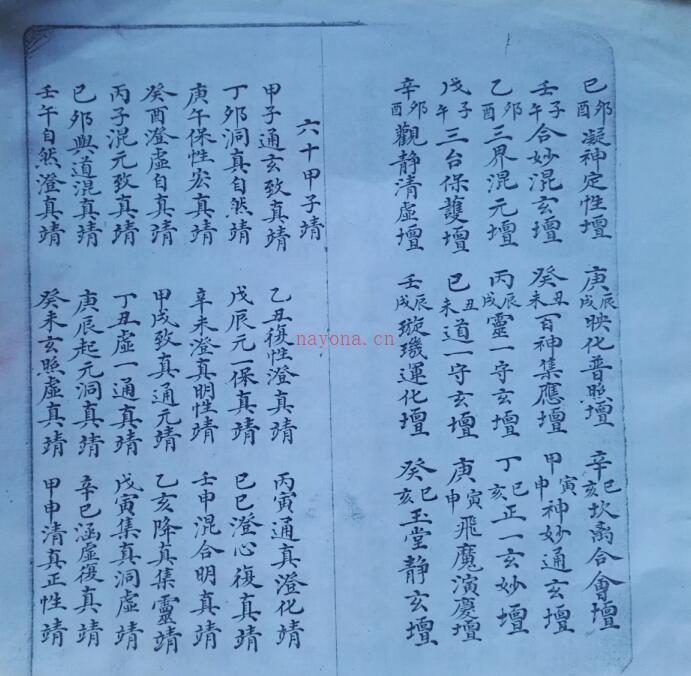 己卯酉凝神定性壇 庚辰戌映化普照壇 辛巳亥坎离合會壇
壬子午合妙混玄壇 癸丑未百神集應壇 甲寅申神妙通玄壇
乙卯酉三界混元壇 丙辰戌靈一守玄壇 丁巳亥正一玄妙壇
戊子午三台保護壇 己丑未道一守玄壇 庚寅申飛魔演慶壇
辛卯酉觀靜清虛壇 壬辰戌璇璣運化壇 癸巳亥玉堂靜玄壇
六十甲子靖
甲子通玄致真靖 乙丑復性澄真靖 丙寅通真澄化靖
丁卯洞真自然靖 戊辰元一保真靖 己巳澄心復真靖
庚午保性宏真靖 辛未澄真明性靖 壬申混合明真靖
癸酉澄虛自真靖 甲戌致真通元靖 乙亥降真集靈靖
丙子混元致真靖 丁丑虛一通真靖 戊寅集真洞虛靖
己卯與道混真靖 庚辰起元洞真靖 辛巳涵虛復真靖
壬午自然澄真靖 癸未玄照虛真靖 甲申清真正性靖
nayona.cn